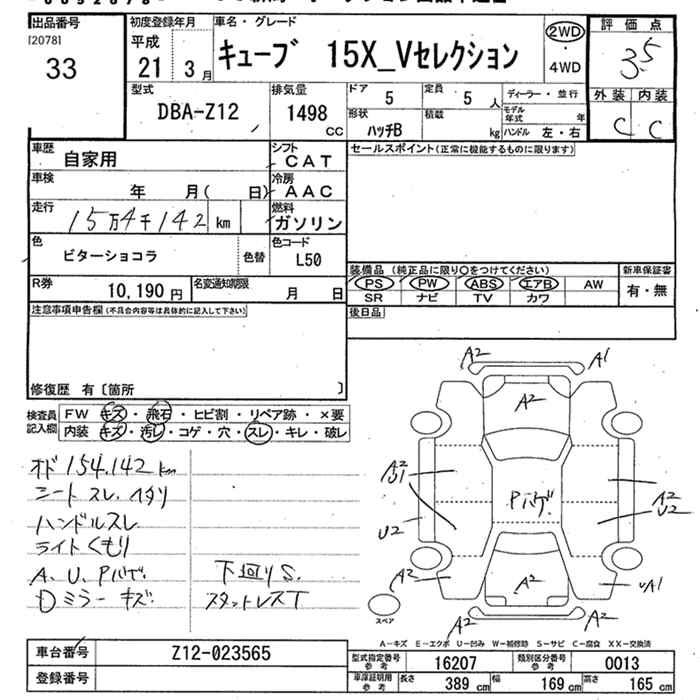 出品番号
[20781
33
初度登録年月
平成
21 3月
車名・グレード
キューブ 15X_Vセレクション
2WD
・
4WD
評価点
3.5
外装 内装
C C
型式
DBA-Z12
排気量
1498
cc
ドア 5
定員 5 人
形状
ハッチB
積載 kg
ディーラー・並行
モデル年式 年
ハンドル 左・右
車歴 自家用
シフト
CAT
車検 年 月( 日)
冷房
AAC
走行 15万4千142 km
燃料
ガソリン
色 ビターショコラ 色替
色コード
L50
R券 10,190円
名変通知期限 月 日
セールスポイント(正常に機能するものに限ります)
装備品 (純正品に限り○をつけてください)
PS PW ABS エアB AW
SR ナビ TV カワ
新車保証書
有・無
後日品
注意事項申告欄(不具合内容等は具体的に記入して下さい)
修復歴 有〔箇所 〕
検査員記入欄
FW キズ・飛石・ヒビ割・リペア跡・×要
内装 キズ・汚レ・コゲ・穴・スレ・キレ・破レ
オド 154.142km
シート スレ.ヘタリ
ハンドルスレ
ライトくもり
A、U、Pバゲ.
Dミラー キズ
下回りS.
スタットレスT
A2 A1
A2
A2
U1
Pバゲ.
A2
U2
U2
A2
A2
UA1
A2 A2
スペア
A-キズ E-エクボ U-凹み W-補修跡 S-サビ C-腐食 XX-交換済
車台番号 Z12-023565
登録番号
型式指定番号 参考 16207
類別区分番号 参考 0013
車庫証明用 参考 長さ 389 cm 幅 169 cm 高さ 165 cm